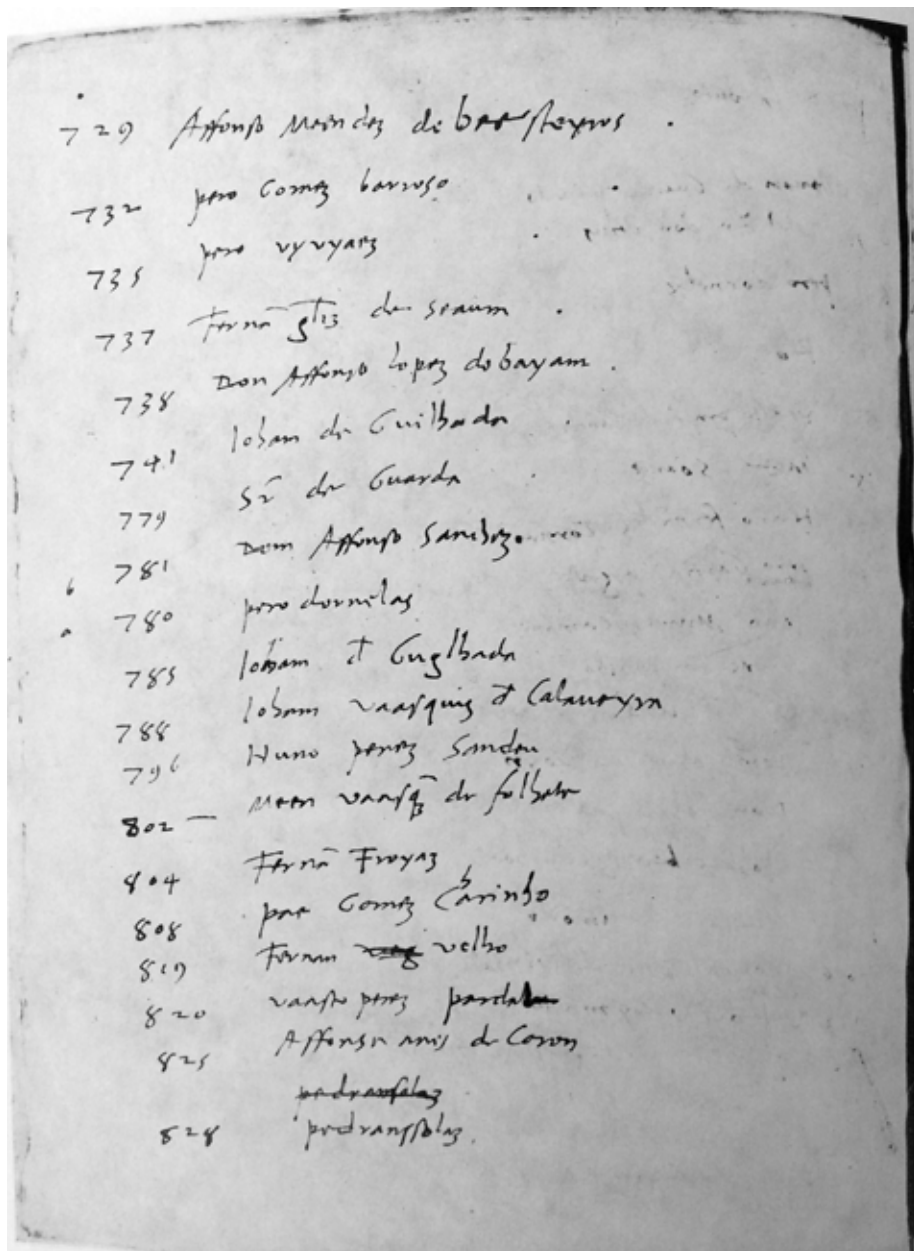 729 Affonso Meendez de beesteyros .
732 pero Gomez barroso
735 pero vyvyaez
737 Fernã glz̃ de Seavim .
738 Don Affonso Lopez dobayam .
741 Joham de Guilhade
779 St̃ de Guarda
b 781 Dom Affonso Sanchez.
a 780 pero dornelas
785 Joham đ Guylhade
788 Joham vaasquiz đ Talaveyra
796 Nuno perez Sandeu
802 — Meen vaasq̃z de folhete
804 Fernã Froyaz
808 pae Gomez Charinho
819 Fernam velho
820 vaasco perez pardal
825 Affonso anes de Coton
pedranssolaz
828 pedranssolaz